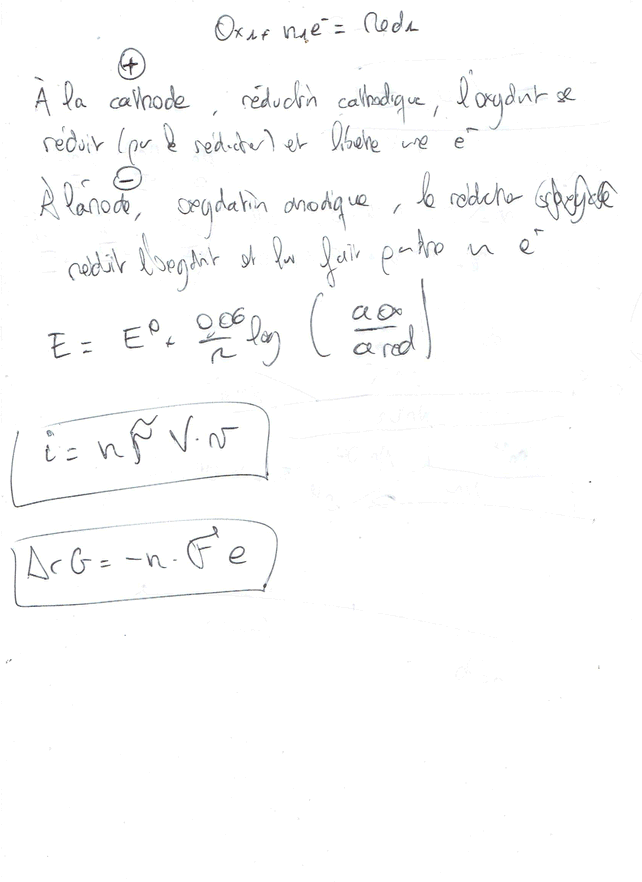 Ox₁ + n₁e⁻ = Red₁
⊕
À la cathode, réduction cathodique, l'oxydant se
réduit (par le réducteur) et libère une e⁻
⊖
À l'anode, oxydation anodique, le réducteur
réduit l'oxydant et lui fait perdre n e⁻
E = E⁰ + 0,06/n log (a ox / a red)
i = n F V · v
ΔrG = -n · F e